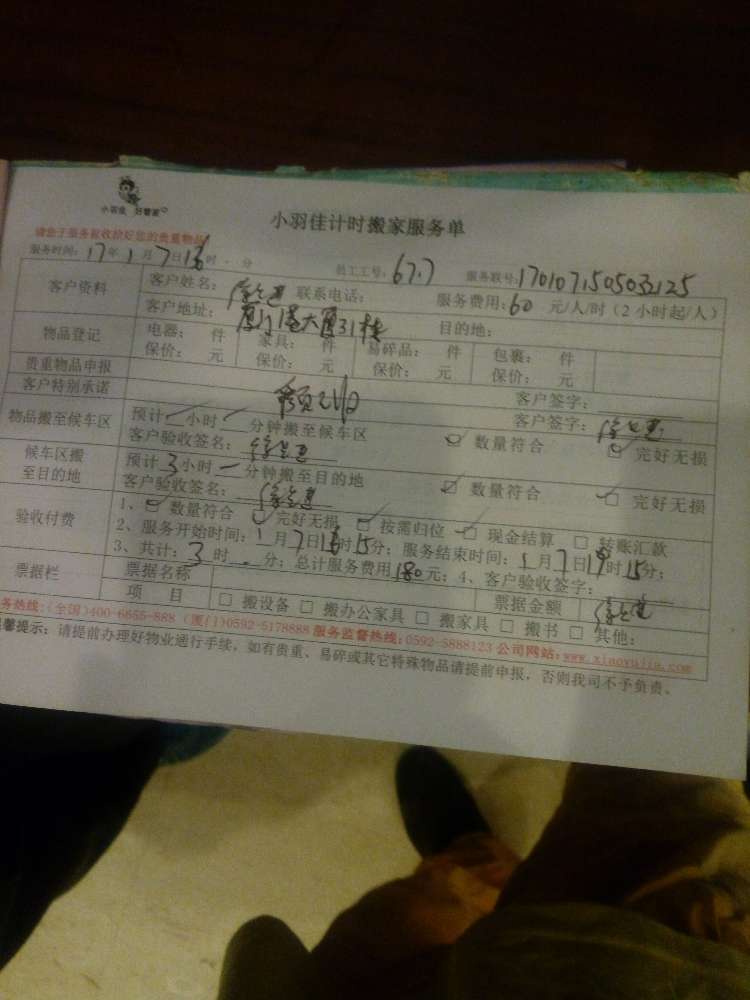 小羽佳 好管家
小羽佳计时搬家服务单
请您于服务前收拾好您的贵重物品
服务时间: 17年1月7日 时 分 员工工号: 67.7 服务联号: 170107150503125
客户资料 客户姓名: 联系电话: 服务费用: 60 元/人/时 (2小时起/人)
客户地址: 大 31 目的地:
物品登记 电器: 件 家具: 件 易碎品: 件 包裹: 件
保价: 元 保价: 元 保价: 元 保价: 元
贵重物品申报 客户签字:
客户特别承诺 客户签字:
物品搬至候车区 预计 小时 分钟搬至候车区 数量符合 完好无损
客户验收签名:
候车区搬至目的地 预计 3 小时 分钟搬至目的地 数量符合 完好无损
客户验收签名:
验收付费 1、 数量符合 完好无损 按需归位 现金结算 转账汇款
2、服务开始时间: 1月7日 时15分; 服务结束时间: 1月7日 时15分;
3、共计: 3 时 分; 总计服务费用 180 元; 4、客户验收签字:
票据栏 票据名称 票据金额
项 目 搬设备 搬办公家具 搬家具 搬书 其他:
务热线: (全国)400-6655-888 (厦门)0592-5178888 服务监督热线: 0592-5888123 公司网站: www.xiaoyujia.com
馨提示: 请提前办理好物业通行手续, 如有贵重、易碎或其它特殊物品请提前申报, 否则我司不予负责、